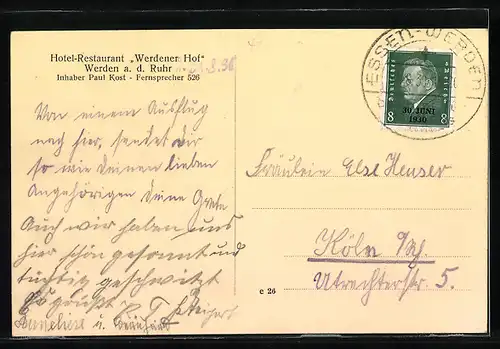 Hotel-Restaurant „Werdener Hof"
Werden a. d. Ruhr
Inhaber Paul Kost - Fernsprecher 526
ESSEN-WERDEN
Deutsches Reich
30. JUNI
1930
8 8
Von einem Ausflug
nach hier, sendet dir
so wie deinen lieben
Angehörigen deine Grete
Auch wir haben uns
hier schön gesonnt und
tüchtig geschwitzt
Es grüsst
u.
Fräulein Else Heuser
Köln
Utrechterstr. 5.
c 26